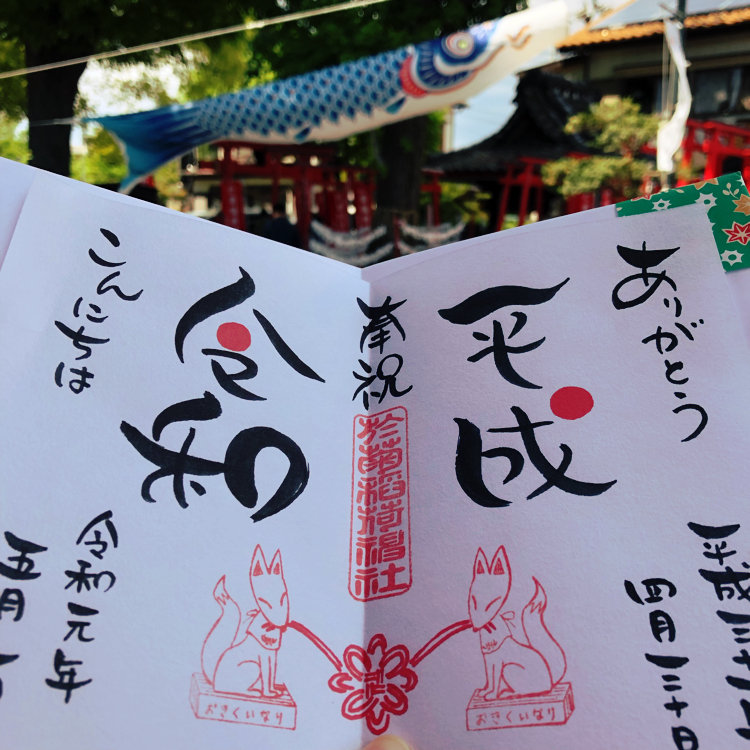 ありがとう
平成
平成三十一年
四月三十日
おきくいなり
奉祝
於菊稲荷神社
令和
こんにちは
令和元年
五月一
おきくいなり